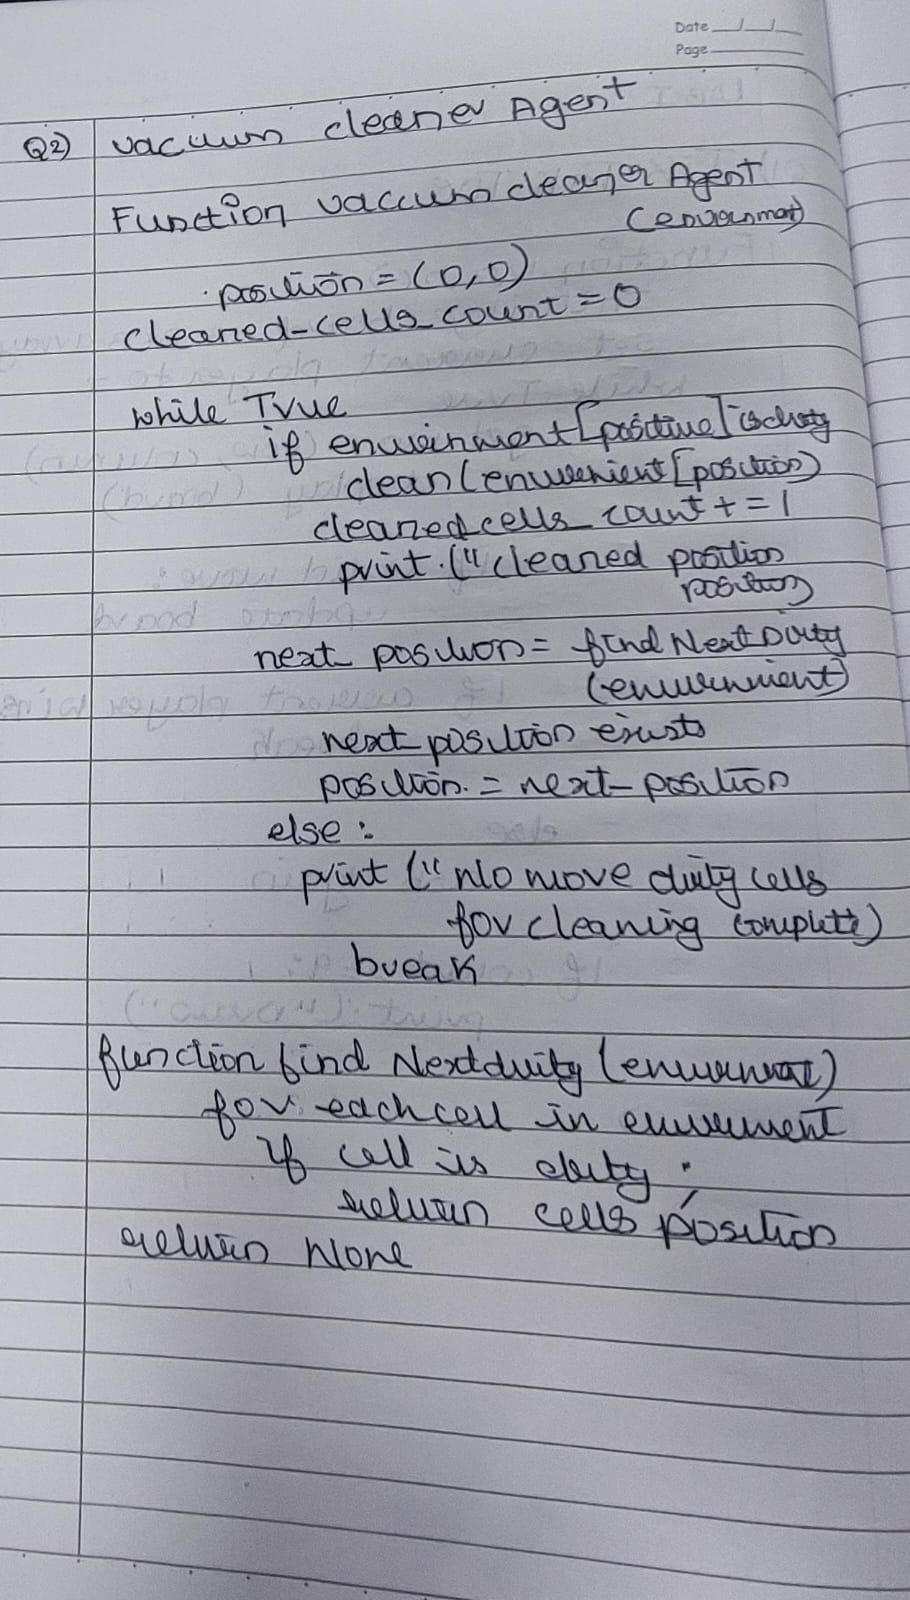 Date
Page
Q2) vacuum cleaner Agent
Function vacuum cleaner Agent
(environment)
position = (0,0)
cleaned-cells_count = 0
while True
if environment [position] is dirty
clean (environment [position)
cleaned cells_count += 1
print ("cleaned position
position
next_position = find Next Dirty
(environment)
next_position exists
position = next_position
else :
print (" No more dirty cells
for cleaning complete)
break
function find Nextdirty (environment)
for each cell in environment
if cell is dirty :
return cells position
return None